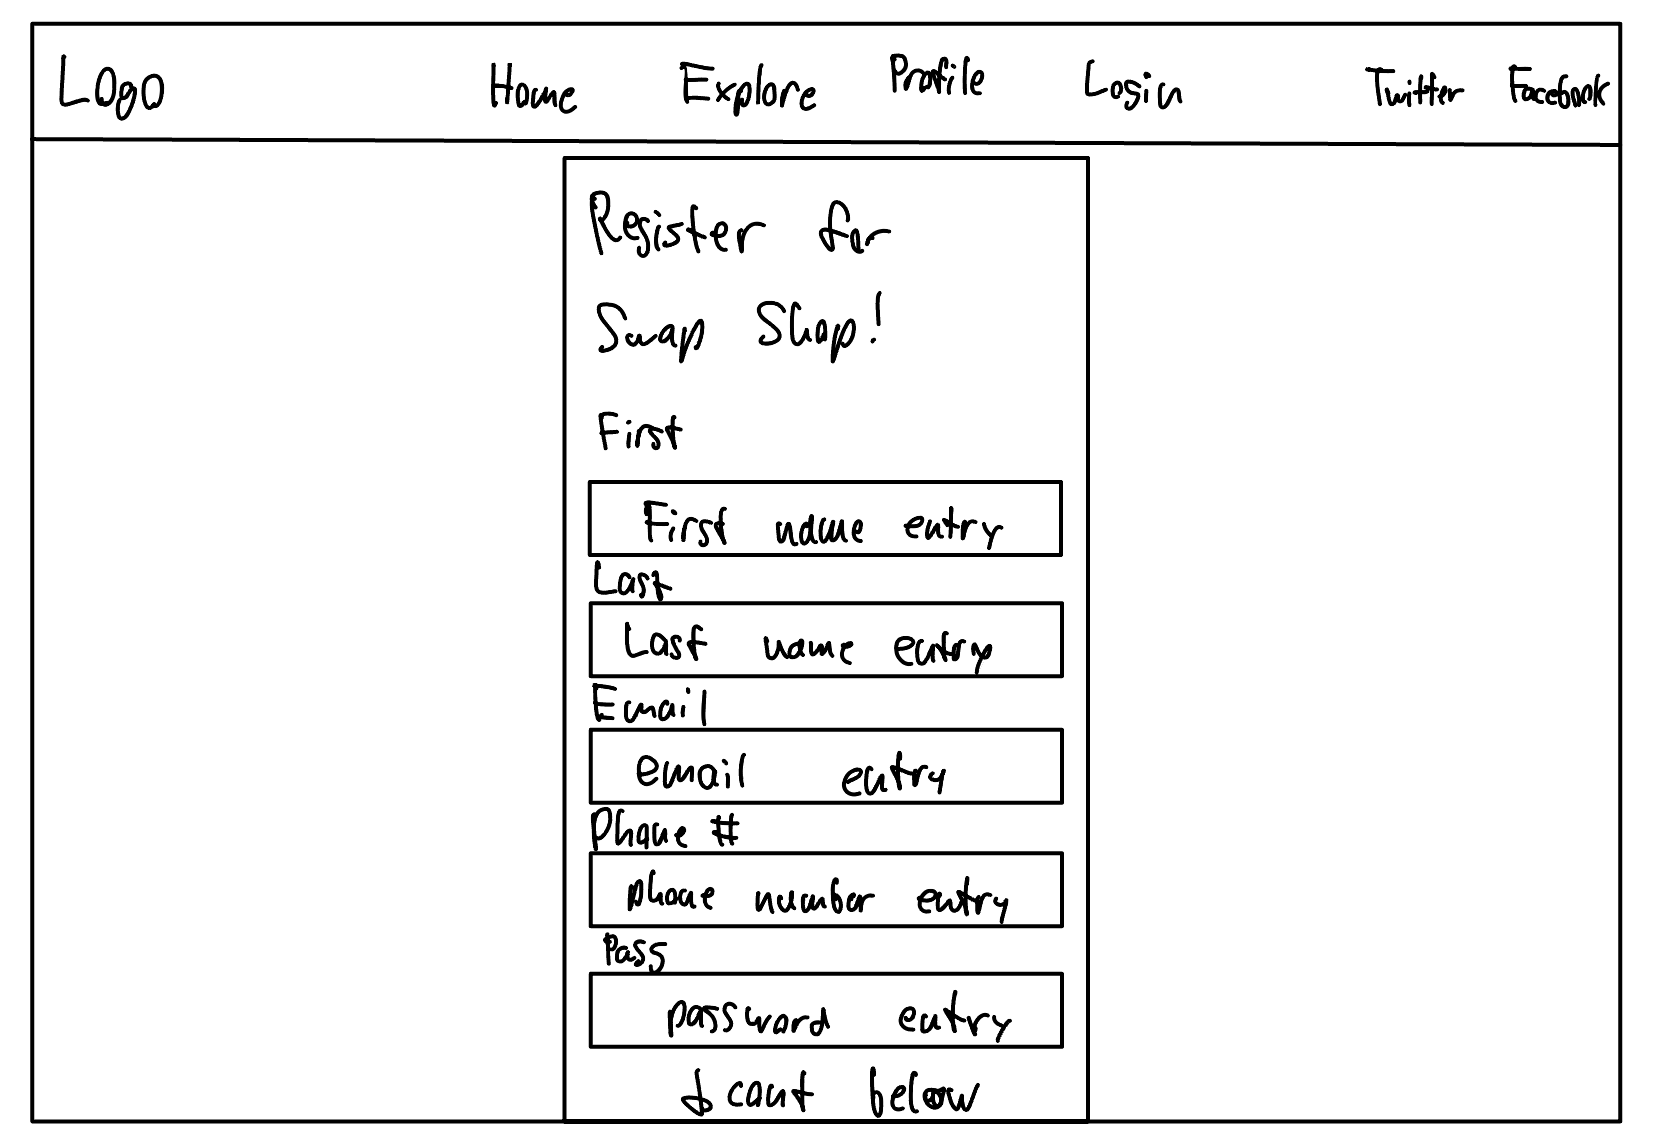 Logo Home Explore Profile Login Twitter Facebook
Register for
Swap Shop!
First
First name entry
Last
Last name entry
Email
email entry
Phone #
phone number entry
Pass
password entry
↓ cont below